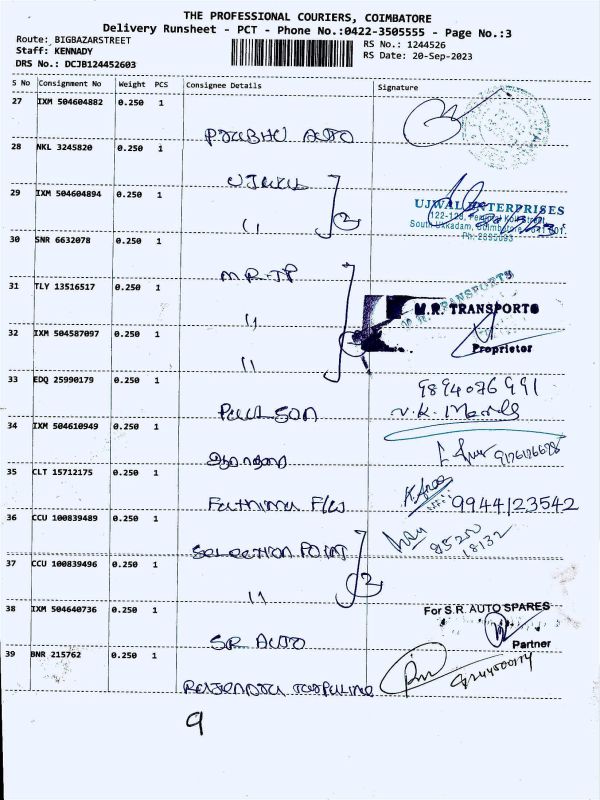 THE PROFESSIONAL COURIERS, COIMBATORE
Delivery Runsheet - PCT - Phone No.:0422-3505555 - Page No.:3
Route: BIGBAZARSTREET
Staff: KENNADY
DRS No.: DCJB124452603
RS No.: 1244526
RS Date: 20-Sep-2023
S No Consignment No Weight PCS Consignee Details Signature
27 IXM 504604882 0.250 1
PRABHU AUTO
28 NKL 3245820 0.250 1
UJWAL
29 IXM 504604894 0.250 1
UJWAL ENTERPRISES
South Ukkadam, Coimbatore
〃
30 SNR 6632078 0.250 1
M.R-TP
31 TLY 13516517 0.250 1
M.R. TRANSPORTS
M.R. TRANSPORTS
〃
32 IXM 504587097 0.250 1
Proprietor
〃
33 EDQ 25990179 0.250 1
9894076991
Paulson
34 IXM 504610949 0.250 1
9176176676
35 CLT 15712175 0.250 1
Fathima F/W
9944123542
36 CCU 100839489 0.250 1
Selection Point
95250
18132
37 CCU 100839496 0.250 1
〃
38 IXM 504640736 0.250 1
For S.R. AUTO SPARES
SR AUTO
Partner
39 BNR 215762 0.250 1
Rajendra Tarpaline
9